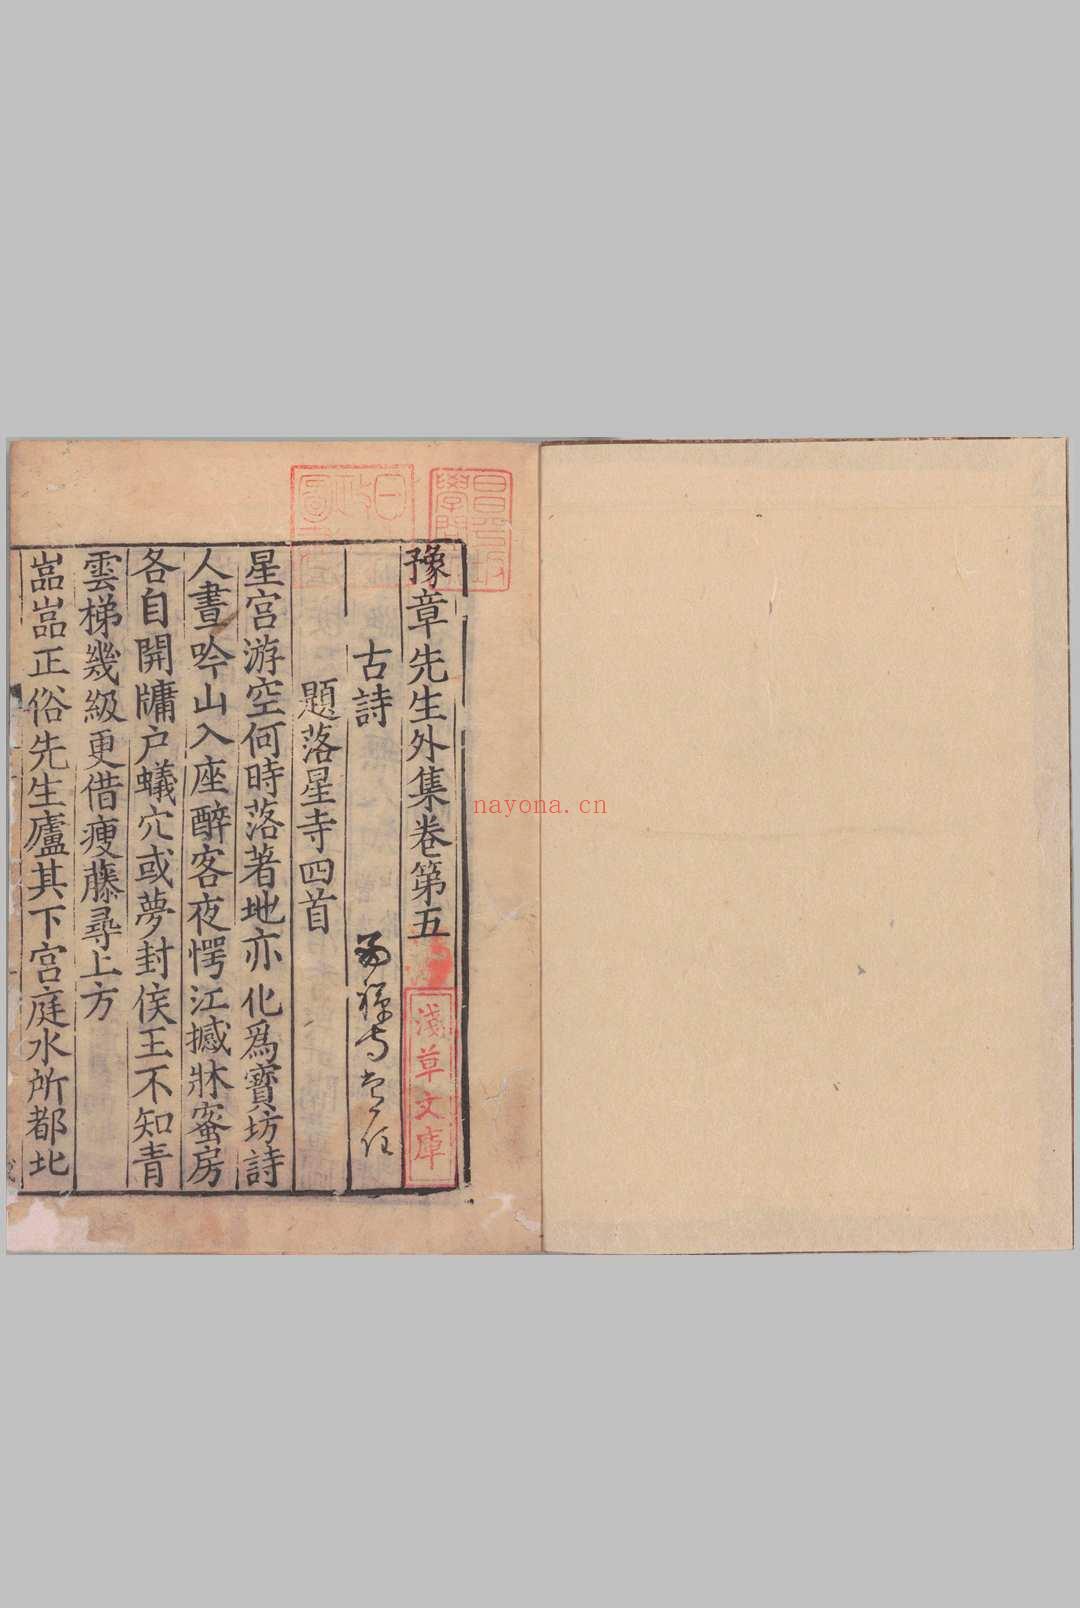 豫章先生外集卷第五
淺草文庫
古詩
題落星寺四首
星宫游空何時落著地亦化爲寶坊詩
人晝吟山入座醉客夜愕江撼牀蜜房
各自開牖户蟻穴或夢封侯王不知青
雲梯幾級更借瘦藤尋上方
嵓嵓正俗先生廬其下宫庭水所都北
nayona.cn